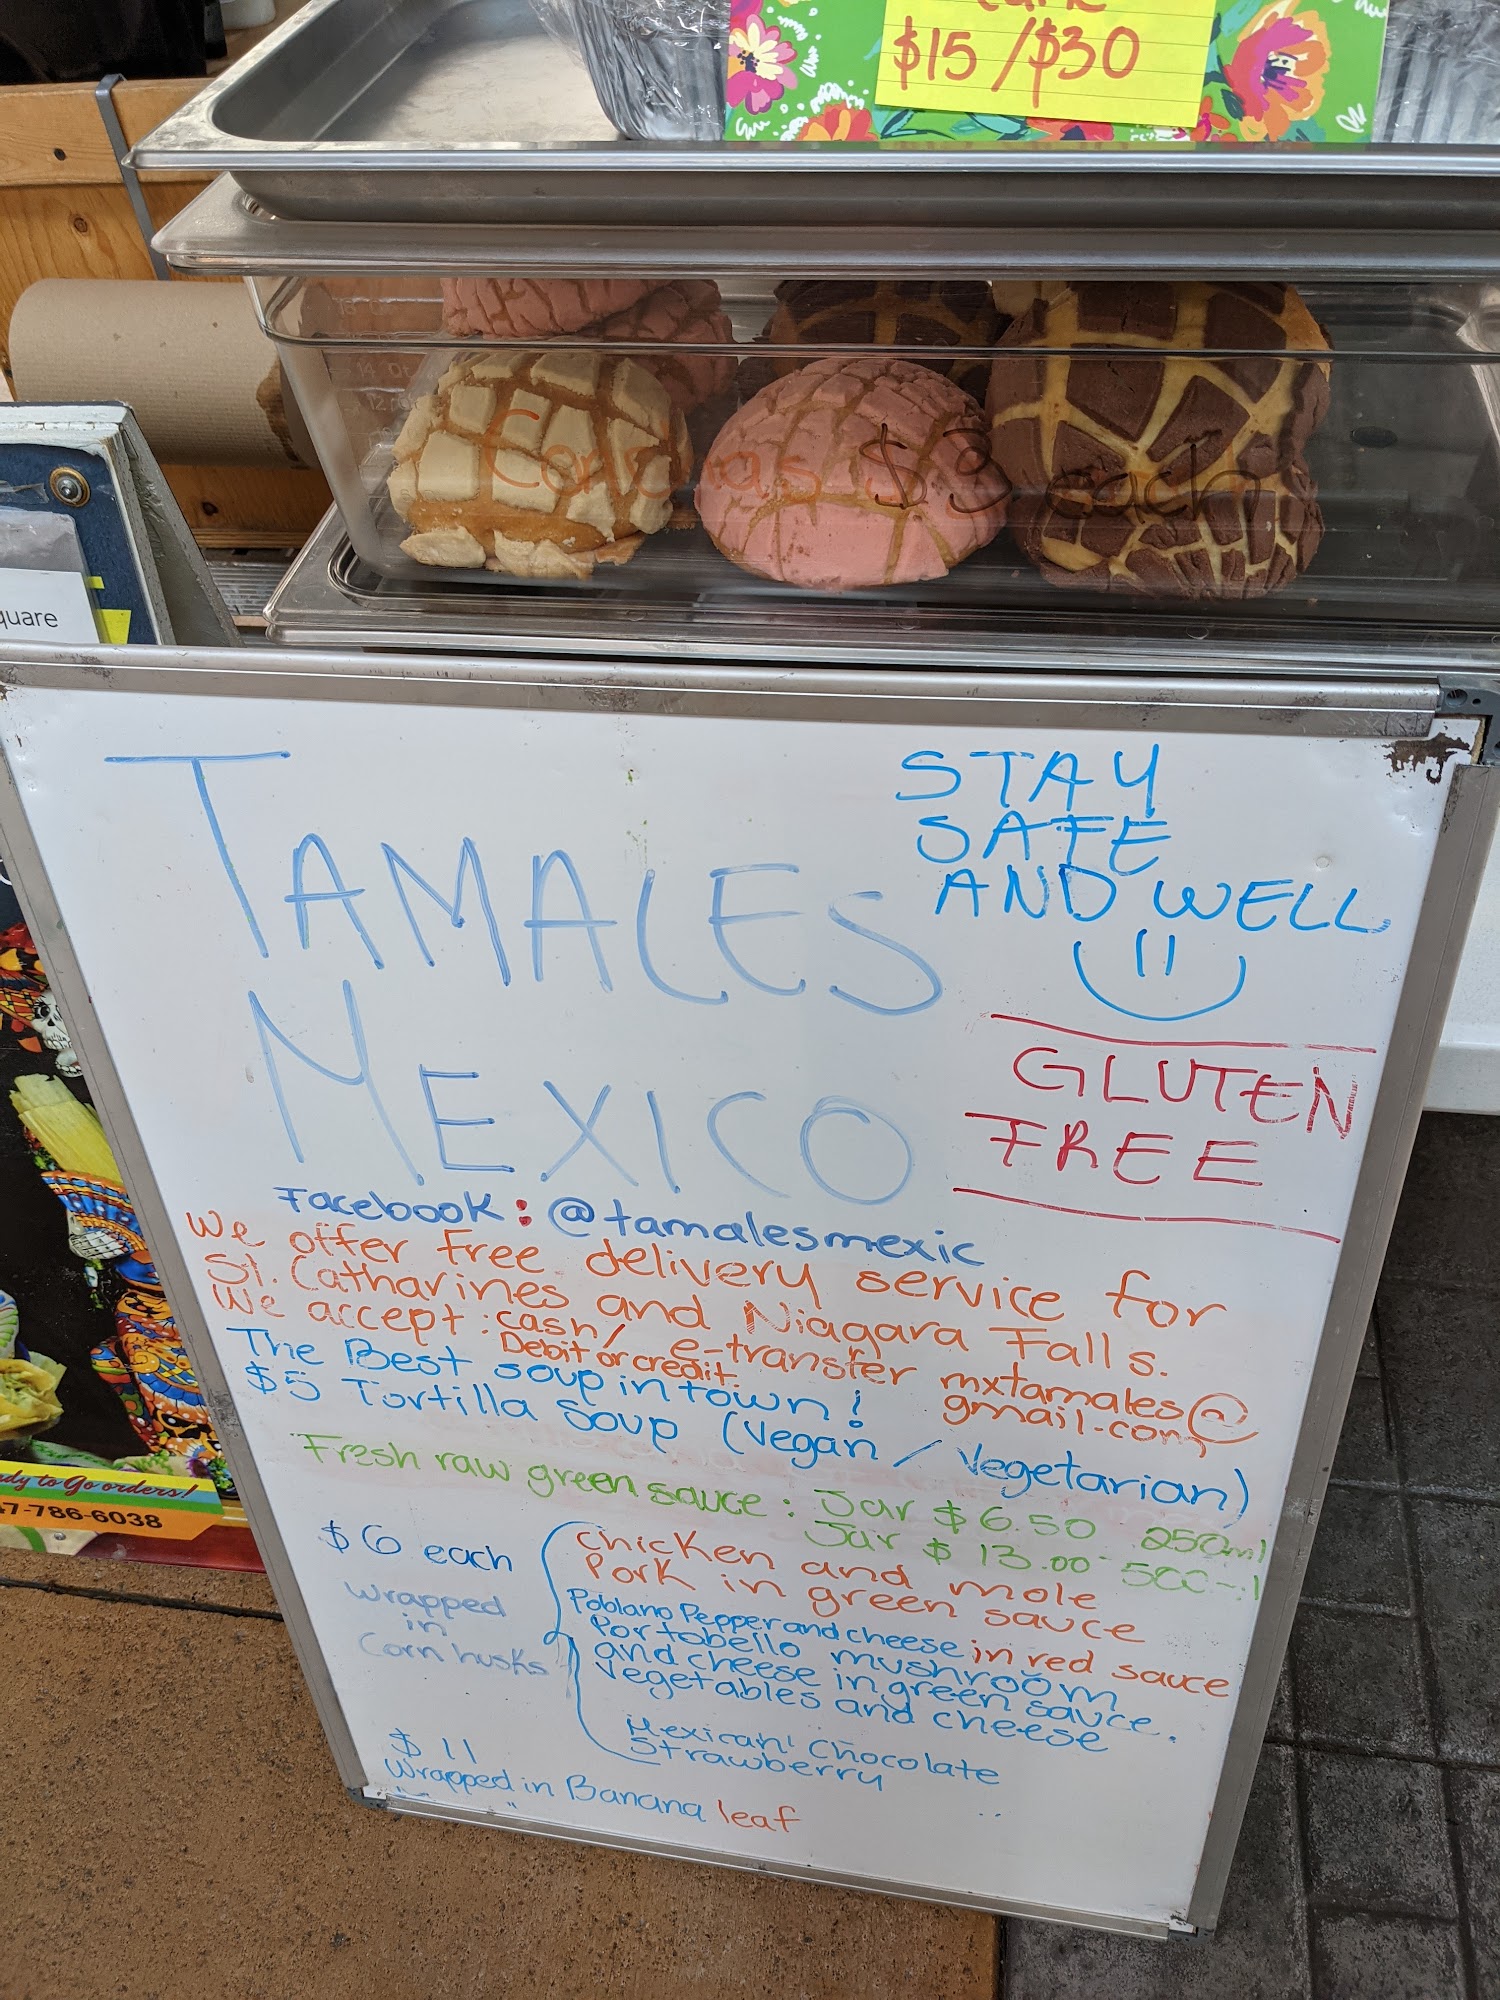 $15/$30
Conchas $3 each
quare
TAMALES
MEXICO
STAY
SAFE
AND WELL
GLUTEN
FREE
Facebook: @tamalesmexic
We offer free delivery service for
St. Catharines and Niagara Falls.
We accept: cash/ e-transfer mxtamales@
Debit or credit. gmail.com
The Best soup in town!
$5 Tortilla Soup (Vegan / Vegetarian)
Fresh raw green sauce: Jar $6.50 250ml
Jar $13.00 500ml
$6 each
wrapped
in
Corn husks
chicken and mole
Pork in green sauce
Poblano Pepper and cheese in red sauce
Portobello mushroom
and cheese in green sauce.
Vegetables and cheese
Mexican Chocolate
Strawberry
$11
Wrapped in Banana leaf
dy to Go orders!
47-786-6038